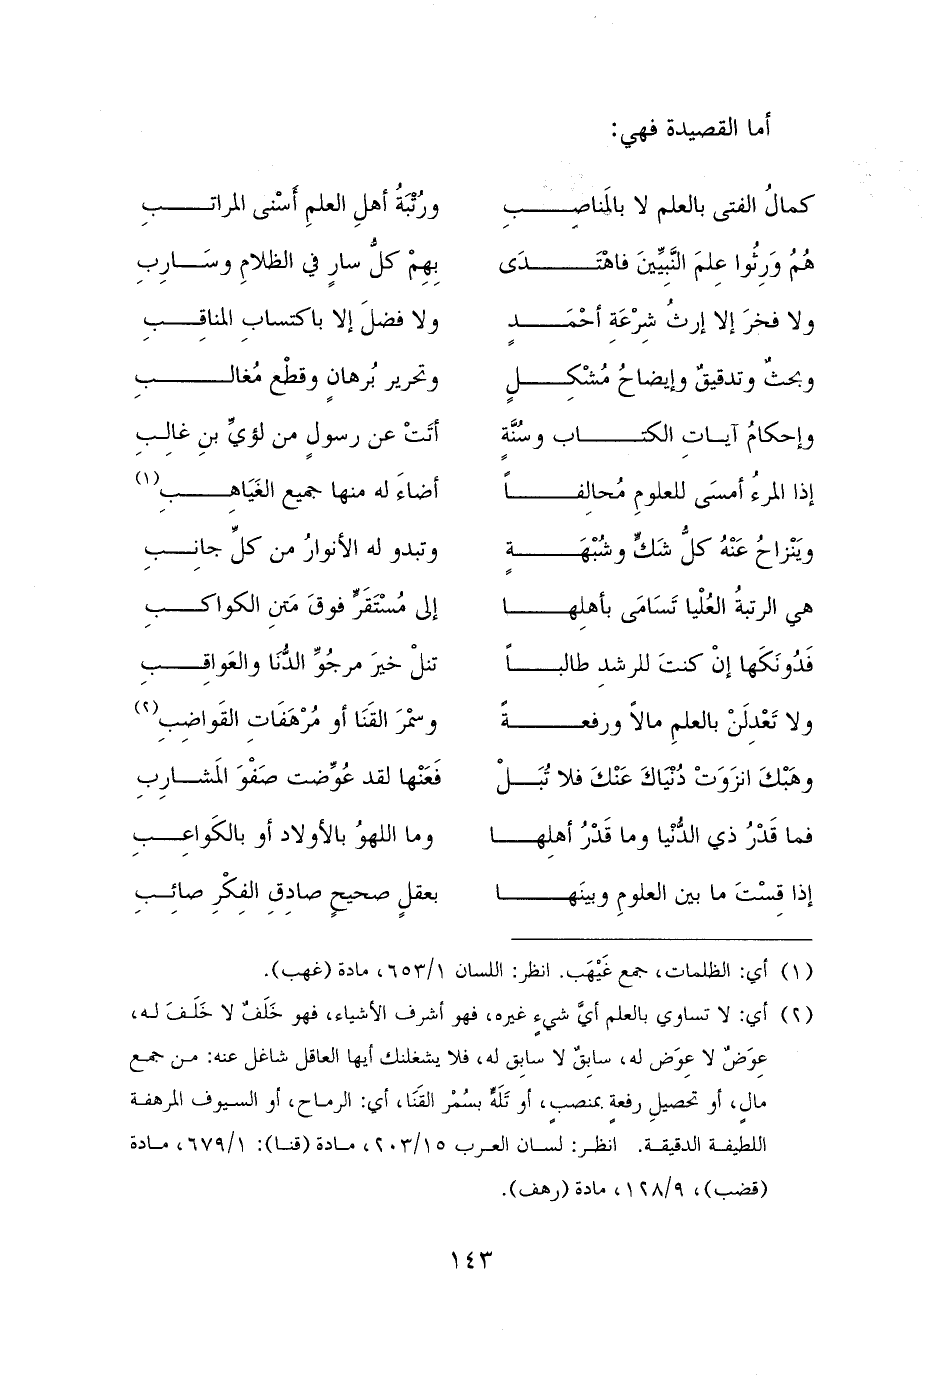 أما القصيدة فهي:
كمالُ الفتى بالعلمِ لا بالمَناصِبِ ورُتْبَةُ أهلِ العلمِ أَسْنى المراتبِ
هُمُ وَرِثُوا علمَ النَّبِيِّينَ فاهْتَدَى بِهِمْ كلُّ سارٍ في الظلامِ وسَارِبِ
ولا فخرَ إلا إرثُ شِرْعَةِ أحْمَدٍ ولا فضلَ إلا باكتسابِ المناقبِ
وبحثٌ وتدقيقٌ وإيضاحُ مُشْكِلٍ وتحرير بُرهانٍ وقطْعِ مُغالبِ
وإحكامُ آياتِ الكتابِ وسُنَّةٍ أتَتْ عن رسولٍ من لؤيِّ بنِ غالبِ
إذا المرءُ أمسَى للعلومِ مُحالفاً أضاءَ له منها جميع الغَيَاهبِ(١)
ويَنْزاحُ عَنْهُ كلُّ شكٍّ وشُبْهَةٍ وتبدو له الأنوارُ من كلِّ جانبِ
هي الرتبةُ العُلْيا تَسَامَى بأهلِها إلى مُسْتَقَرٍّ فوقَ مَتنِ الكواكبِ
فَدُونَكَها إنْ كنتَ للرشدِ طالباً تنلْ خيرَ مرجُوِّ الدُّنَا والعَواقبِ
ولا تَعْدلَنْ بالعلمِ مالاً ورفعةً وسمْرَ القَنَا أو مُرْهَفَاتِ القَواضِبِ(٢)
وهَبْكَ انزَوَتْ دُنْيَاكَ عَنْكَ فلا تُبَلْ فَعَنْها لقد عُوِّضت صَفْوَ المَشَاربِ
فما قَدْرُ ذي الدُّنْيا وما قَدْرُ أهلِها وما اللهوُ بالأولادِ أو بالكَواعبِ
إذا قِسْتَ ما بين العلومِ وبينَها بعقلٍ صحيحٍ صادقِ الفكْرِ صائبِ
(١) أي: الظلمات، جمع غَيْهَب. انظر: اللسان ٦٥٣/١، مادة (غهب).
(٢) أي: لا تساوي بالعلم أيَّ شيءٍ غيره، فهو أشرف الأشياء، فهو خَلَفٌ لا خَلَفَ له،
عِوَضٌ لا عِوَض له، سابقٌ لا سابق له، فلا يشغلنك أيها العاقل شاغل عنه: من جمع
مالٍ، أو تحصيلِ رفعةٍ بمنصبٍ، أو تَلَهٍّ بسُمْر القَنَا، أي: الرماح، أو السيوف المرهفة
اللطيفة الدقيقة. انظر: لسان العرب ٢٠٣/١٥، مادة (قنا): ٦٧٩/١، مادة
(قضب)، ١٢٨/٩، مادة (رهف).
١٤٣